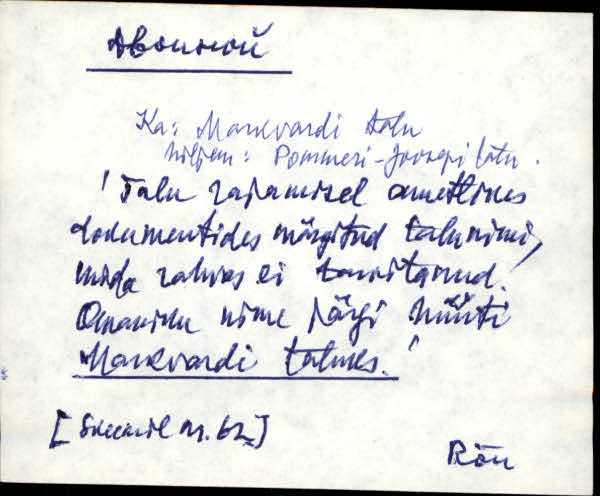 Ka: Markvardi talu
hiljem: Pommeri-Joosepi talu.
'Talu rajamisel ametlikes
dokumentides märgitud talu nimi,
mida rahvas ei tarvitanud.
Omaniku nime järgi hüüti
Markvardi taluks.'
[Skeemil nr. 62]
Rõu